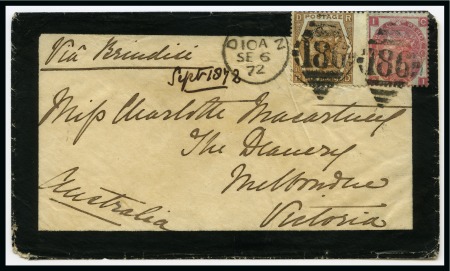 Viâ Brindisi
Sept 1872
D10A Z
SE 6
72
POSTAGE
186
186
Miss Charlotte Macartney
The Deanery
Melbourne
Victoria
Australia